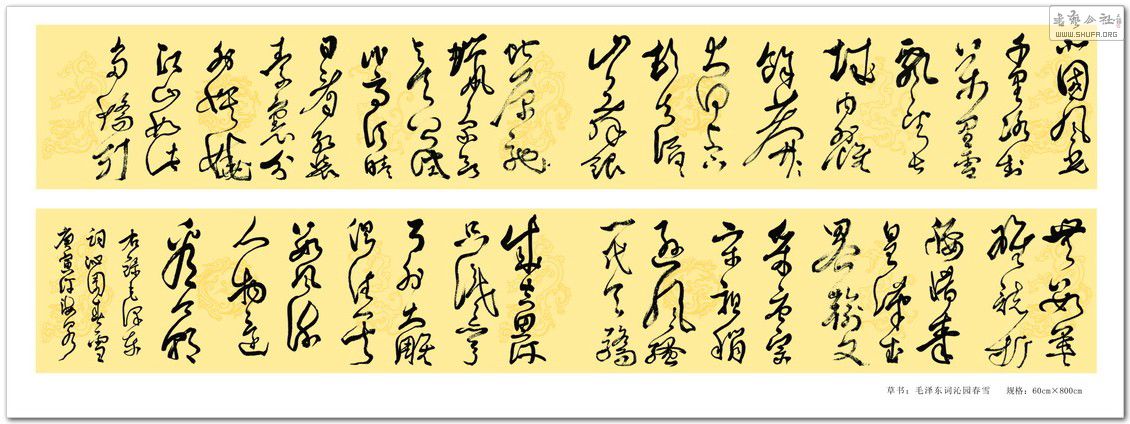 书艺公社
WWW.SHUFA.ORG
北國风光
千里冰封
萬里雪
飘望长
城内外惟
馀莽莽
大河上下
顿失滔滔
山舞银
蛇原驰
蠟象欲
与天公试
比高须晴
日看红装
素裹分
外妖娆
江山如此
多娇引
無数英
雄竞折
腰惜秦
皇漢武
略输文
采唐宗
宋祖稍
逊风骚
一代天骄
成吉思汗
只识弯
弓射大雕
俱往矣
数风流
人物还
看今朝
右录毛泽东
词沁園春雪
庚寅年
草书：毛泽东词沁园春雪 规格：60cm×800cm